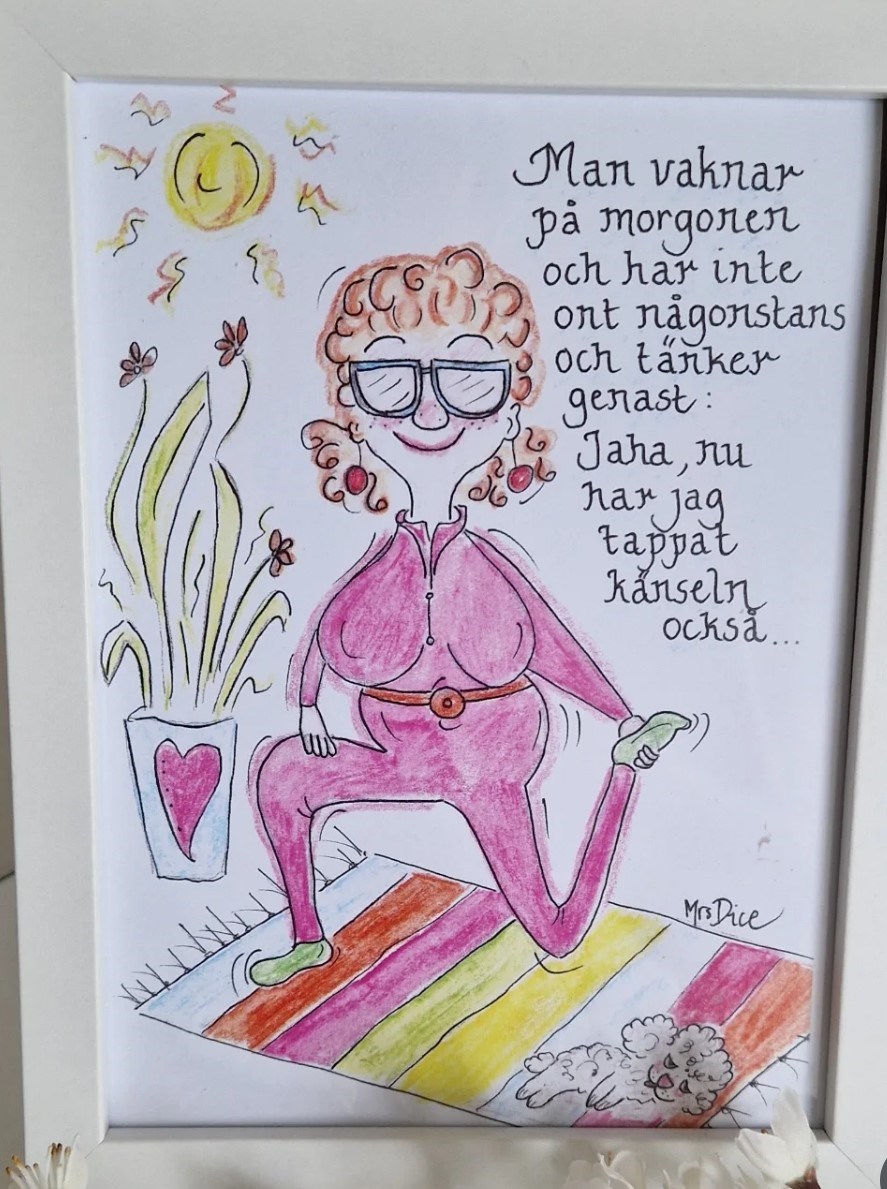 Man vaknar
på morgonen
och har inte
ont någonstans
och tänker
genast:
Jaha, nu
har jag
tappat
känseln
också...
MrsDice